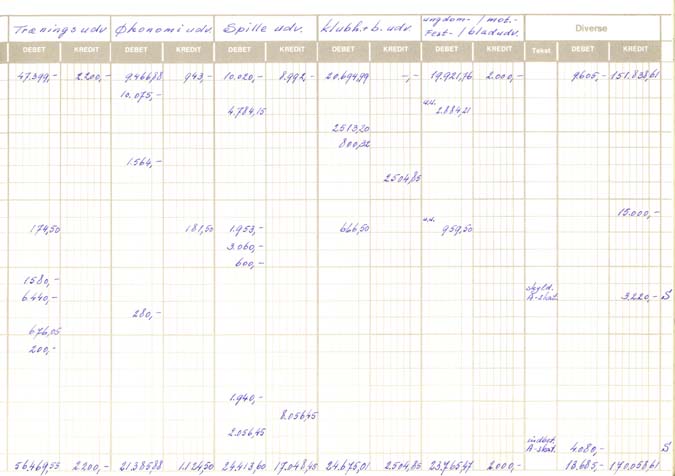 Trænings udv. Økonomi udv. Spille udv. Klubh.+b. udv. ungdom- / mot.-
Fest- / bladudv. Diverse
DEBET KREDIT DEBET KREDIT DEBET KREDIT DEBET KREDIT DEBET KREDIT Tekst DEBET KREDIT
47.399,- 2.200,- 9.466,88 943,- 10.020,- 8.992,- 20.694,99 -,- 19.921,76 2.000,- 9605,- 151.838,61
10.075,-
4.784,15 u.u. 2.884,21
2513,20
800,32
1.564,-
2504,85
15.000,-
174,50 181,50 1.953,- 666,50 u.u. 959,50
3.060,-
600,-
1580,-
6.440,- skyld. A-skat. 3.220,- S
280,-
676,05
200,-
1.940,-
8.056,45
2.056,45
indbet. A-skat. 4.080,- S
56.469,55 2.200,- 21.385,88 1.124,50 24.413,60 17.048,45 24.675,01 2504,85 23.765,47 2.000,- 13.685,- 170.058,61